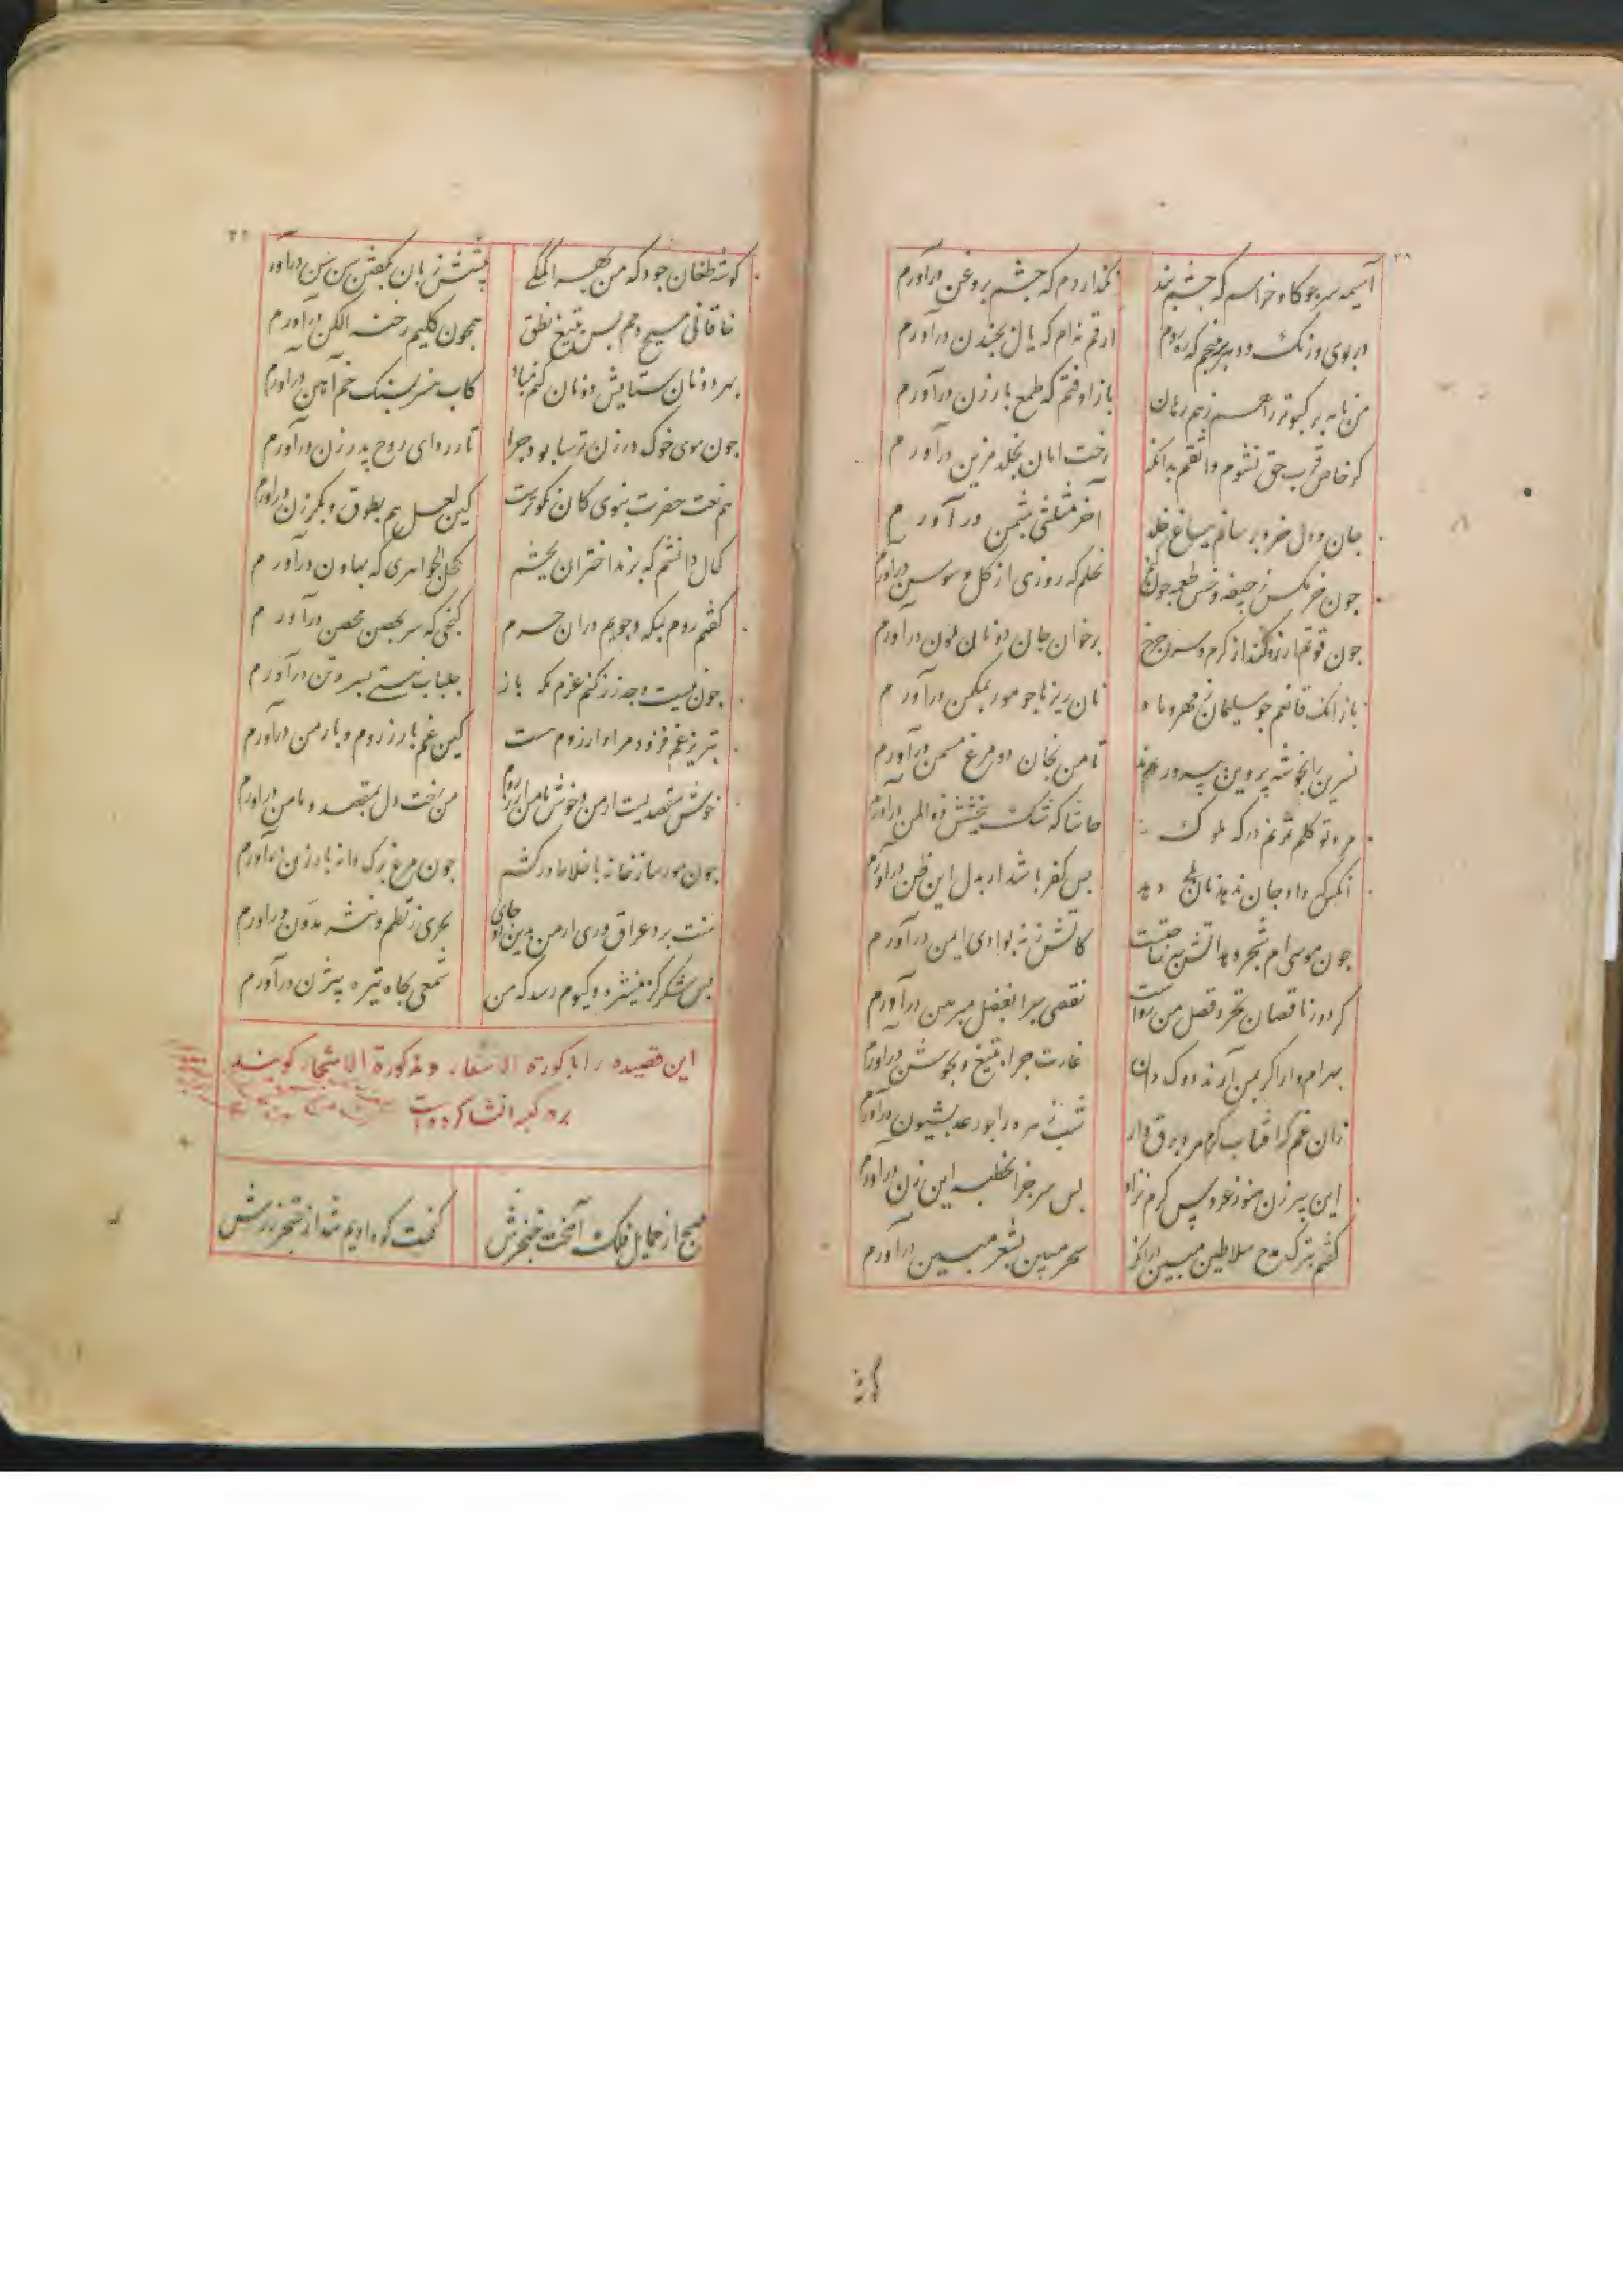 ۲۸
آسیمه سر چو کاو خراسم که چشم بند نگذاردم که چشم بروغن درآورم
در بوی و رنک دهر نپیچم که ره روم ارقم نه‌ام که یال بچندن درآورم
من نامه بر کبوتر راهم ز همرهان باز اوفتم که طمع بارزن درآورم
کر خاص قرب حق نشوم واثقم بدانکه رخت امان بخلد مزین درآورم
جان و دل و خرد برسانم بباغ خلد آخر مثلثی بثمن درآورم
جون خرمکس ز جیفه و خس طعمه جون کنم نحلم که روزی از کل و سوسن درآورم
جون قوتم آرزو کند از کرم و سرد چرخ بر خوان جان دو نان ملون درآورم
باز آنک قانعم جو سلیمان ز مهر و ماه نان ریزها جو مور بمکمن درآورم
نسرین را بخوشه پروین بپرورند تا من بخوان دو مرغ مسمن درآورم
مرد توکلم نزنم درکه ملوک حاشا که شک ببخشش ذوالمن درآورم
آنکس که داد جان ندهد نان بلی دهد بس کفر باشد ار بدل این ظن درآورم
جون موسی‌ام شجر دهد آتش چه حاجتست کاتش زنه بوادی ایمن درآورم
کردون ناقصان نخرد فضل من رواست نقصی جرا بفضل مبرهن درآورم
بهرام‌وار اکر بمن آرند دوک‌دان غارت جرا بتیغ و بجوشن درآورم
زان غم که آفتاب کرم مرد برق‌وار شب زهره را جو رعد بشیون درآورم
این پیرزن هنوز عروس کرم نزاد بس سر جرا بخطبه این زن درآورم
کفتم بترک مدح سلاطین مبین در آنکه سحر مبین بشعر مبین درآورم
کوشه
کو شه طغان جود که من بهر اتمکی پیشش زبان بکفتن سن سن درآورم
خاقانی مسیح دمم پس بتیغ نطق همچون کلیم رخنه الکن درآورم
بهر دو نان ستایش دونان کنم مباد کاب کهر بسنک خم‌آهن درآورم
جون موی خوک در زن ترسا بود جرا تار ردای روح بدرزن درآورم
هم نعت حضرت نبوی کان نکوترست کین لعل هم بطوق و بکرزن درآورم
کحال دانشم که برند اختران بچشم کحل الجواهری که بهاون درآورم
کفتم روم بمکه و جویم در آن حرم کنجی که سر بحصن محصن درآورم
جون نیست وجه زر نکنم عزم مکه باز جلباب نیستی بسر و تن درآورم
تبریز غم فزود مرا آرزوم هست کین غم بارزروم و بارمن درآورم
خوش مقصدیست ارمن و خوش مامن ارزروم من رخت دل بمقصد و مامن درآورم
جون مور ساز خانه باخلاط درکشم جون مرغ برک دانه بارزن درآورم
منت برد عراق و ری ار من بدین دو جای بحری ز نظم و نثر مدون درآورم
بس شکر کز منیژه و کیوم رسد که من شمعی بجاه تیره بیژن درآورم
این قصیده را باکورة الاسفار و مذکورة الاسحار کویند
بر در کعبه انشا کرده است
صبح از حمایل فلک آهیخت خنجرش کیمخت کوه ادیم شد از خنجر زرش